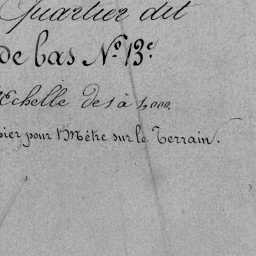 Quartier dit
de bas N.º 13.ᵉ
Echelle de 1 à 1,000.
pier pour 1 Mètre sur le Terrain.